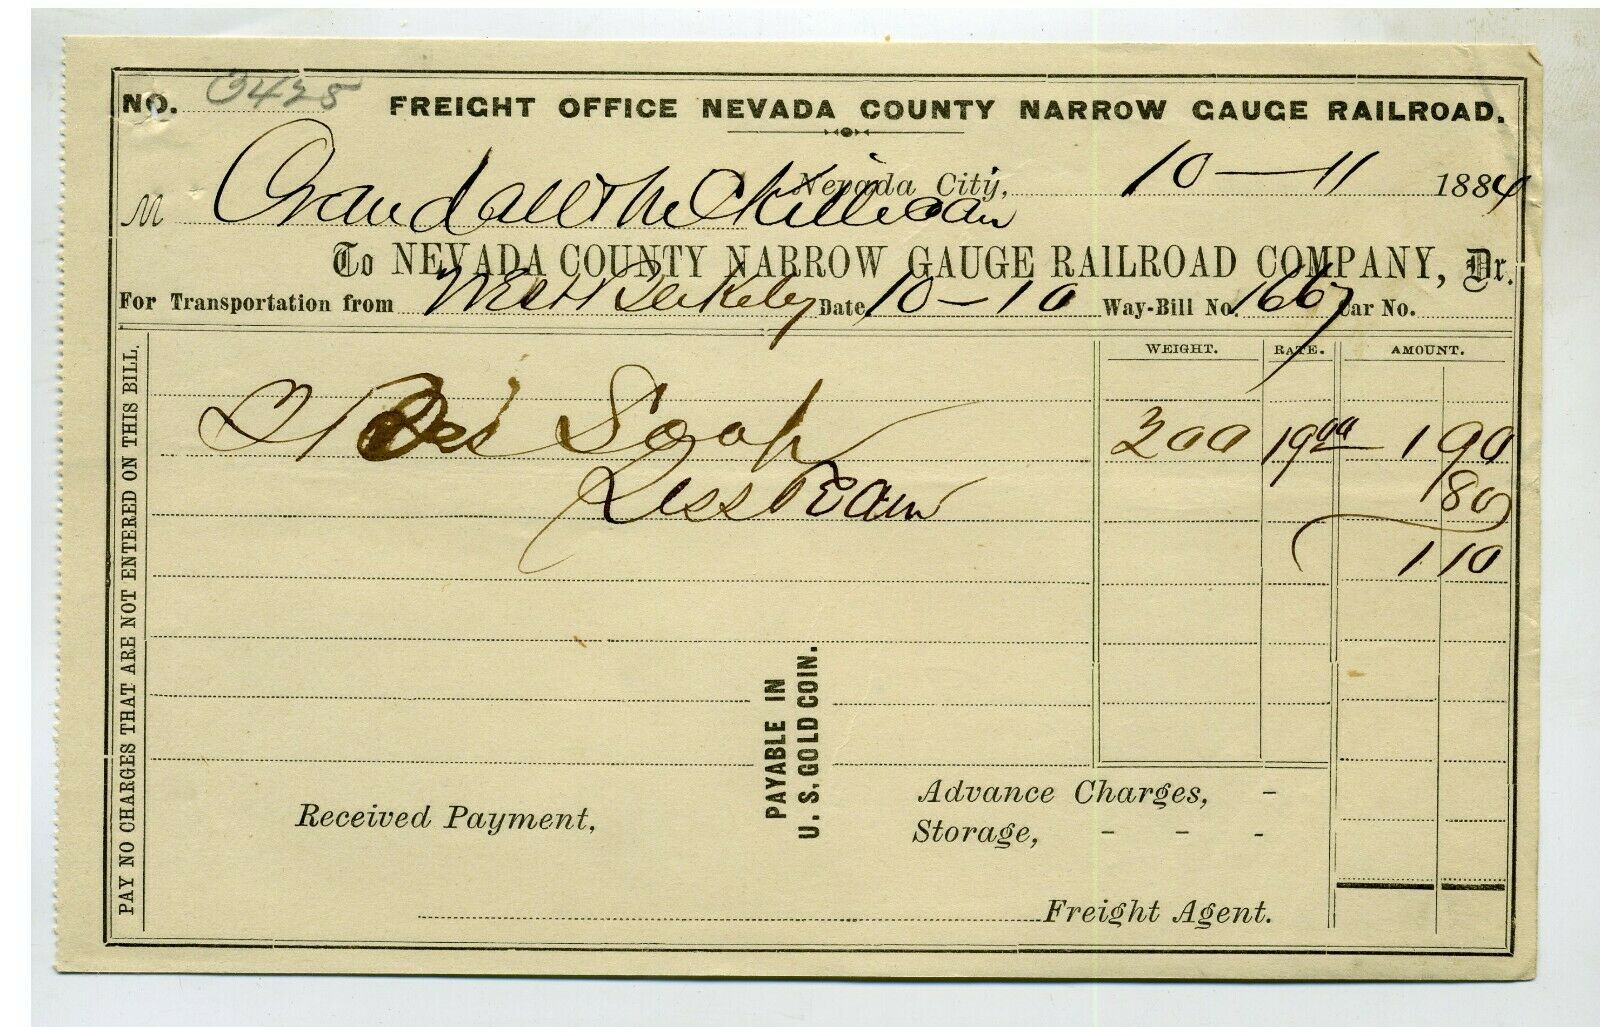 NO. 3425 FREIGHT OFFICE NEVADA COUNTY NARROW GAUGE RAILROAD.
Nevada City, 10 — 11 1884
M Crandall & McKilligan
To NEVADA COUNTY NARROW GAUGE RAILROAD COMPANY, Dr.
For Transportation from West Berkeley Date 10 — 10 Way-Bill No. 1667 Car No.
WEIGHT. RATE. AMOUNT.
Soap 200 19 00 1 90
Less 80
1 10
PAY NO CHARGES THAT ARE NOT ENTERED ON THIS BILL.
PAYABLE IN
U. S. GOLD COIN.
Advance Charges, -
Received Payment,
Storage, - - -
Freight Agent.